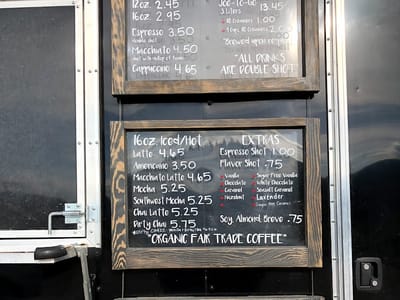 12oz. 2.45
16oz. 2.95
Espresso 3.50
double shot
Macchiato 4.50
Cappuccino 4.65
Joe-to-Go
3 Liters 13.45
1.00
2.00
"Brewed upon request"
"ALL DRINKS
ARE DOUBLE SHOT"
16oz. Iced/Hot
Latte 4.65
Americano 3.50
Macchiato Latte 4.65
Mocha 5.25
Southwest Mocha 5.25
Chai Latte 5.25
Dirty Chai 5.75
EXTRAS
Espresso Shot 1.00
Flavor Shot .75
Vanilla
Chocolate
Caramel
Hazelnut
Sugar Free Vanilla
White Chocolate
Seasalt Caramel
Lavender
Soy, Almond, Breve .75
"ORGANIC FAIR TRADE COFFEE"